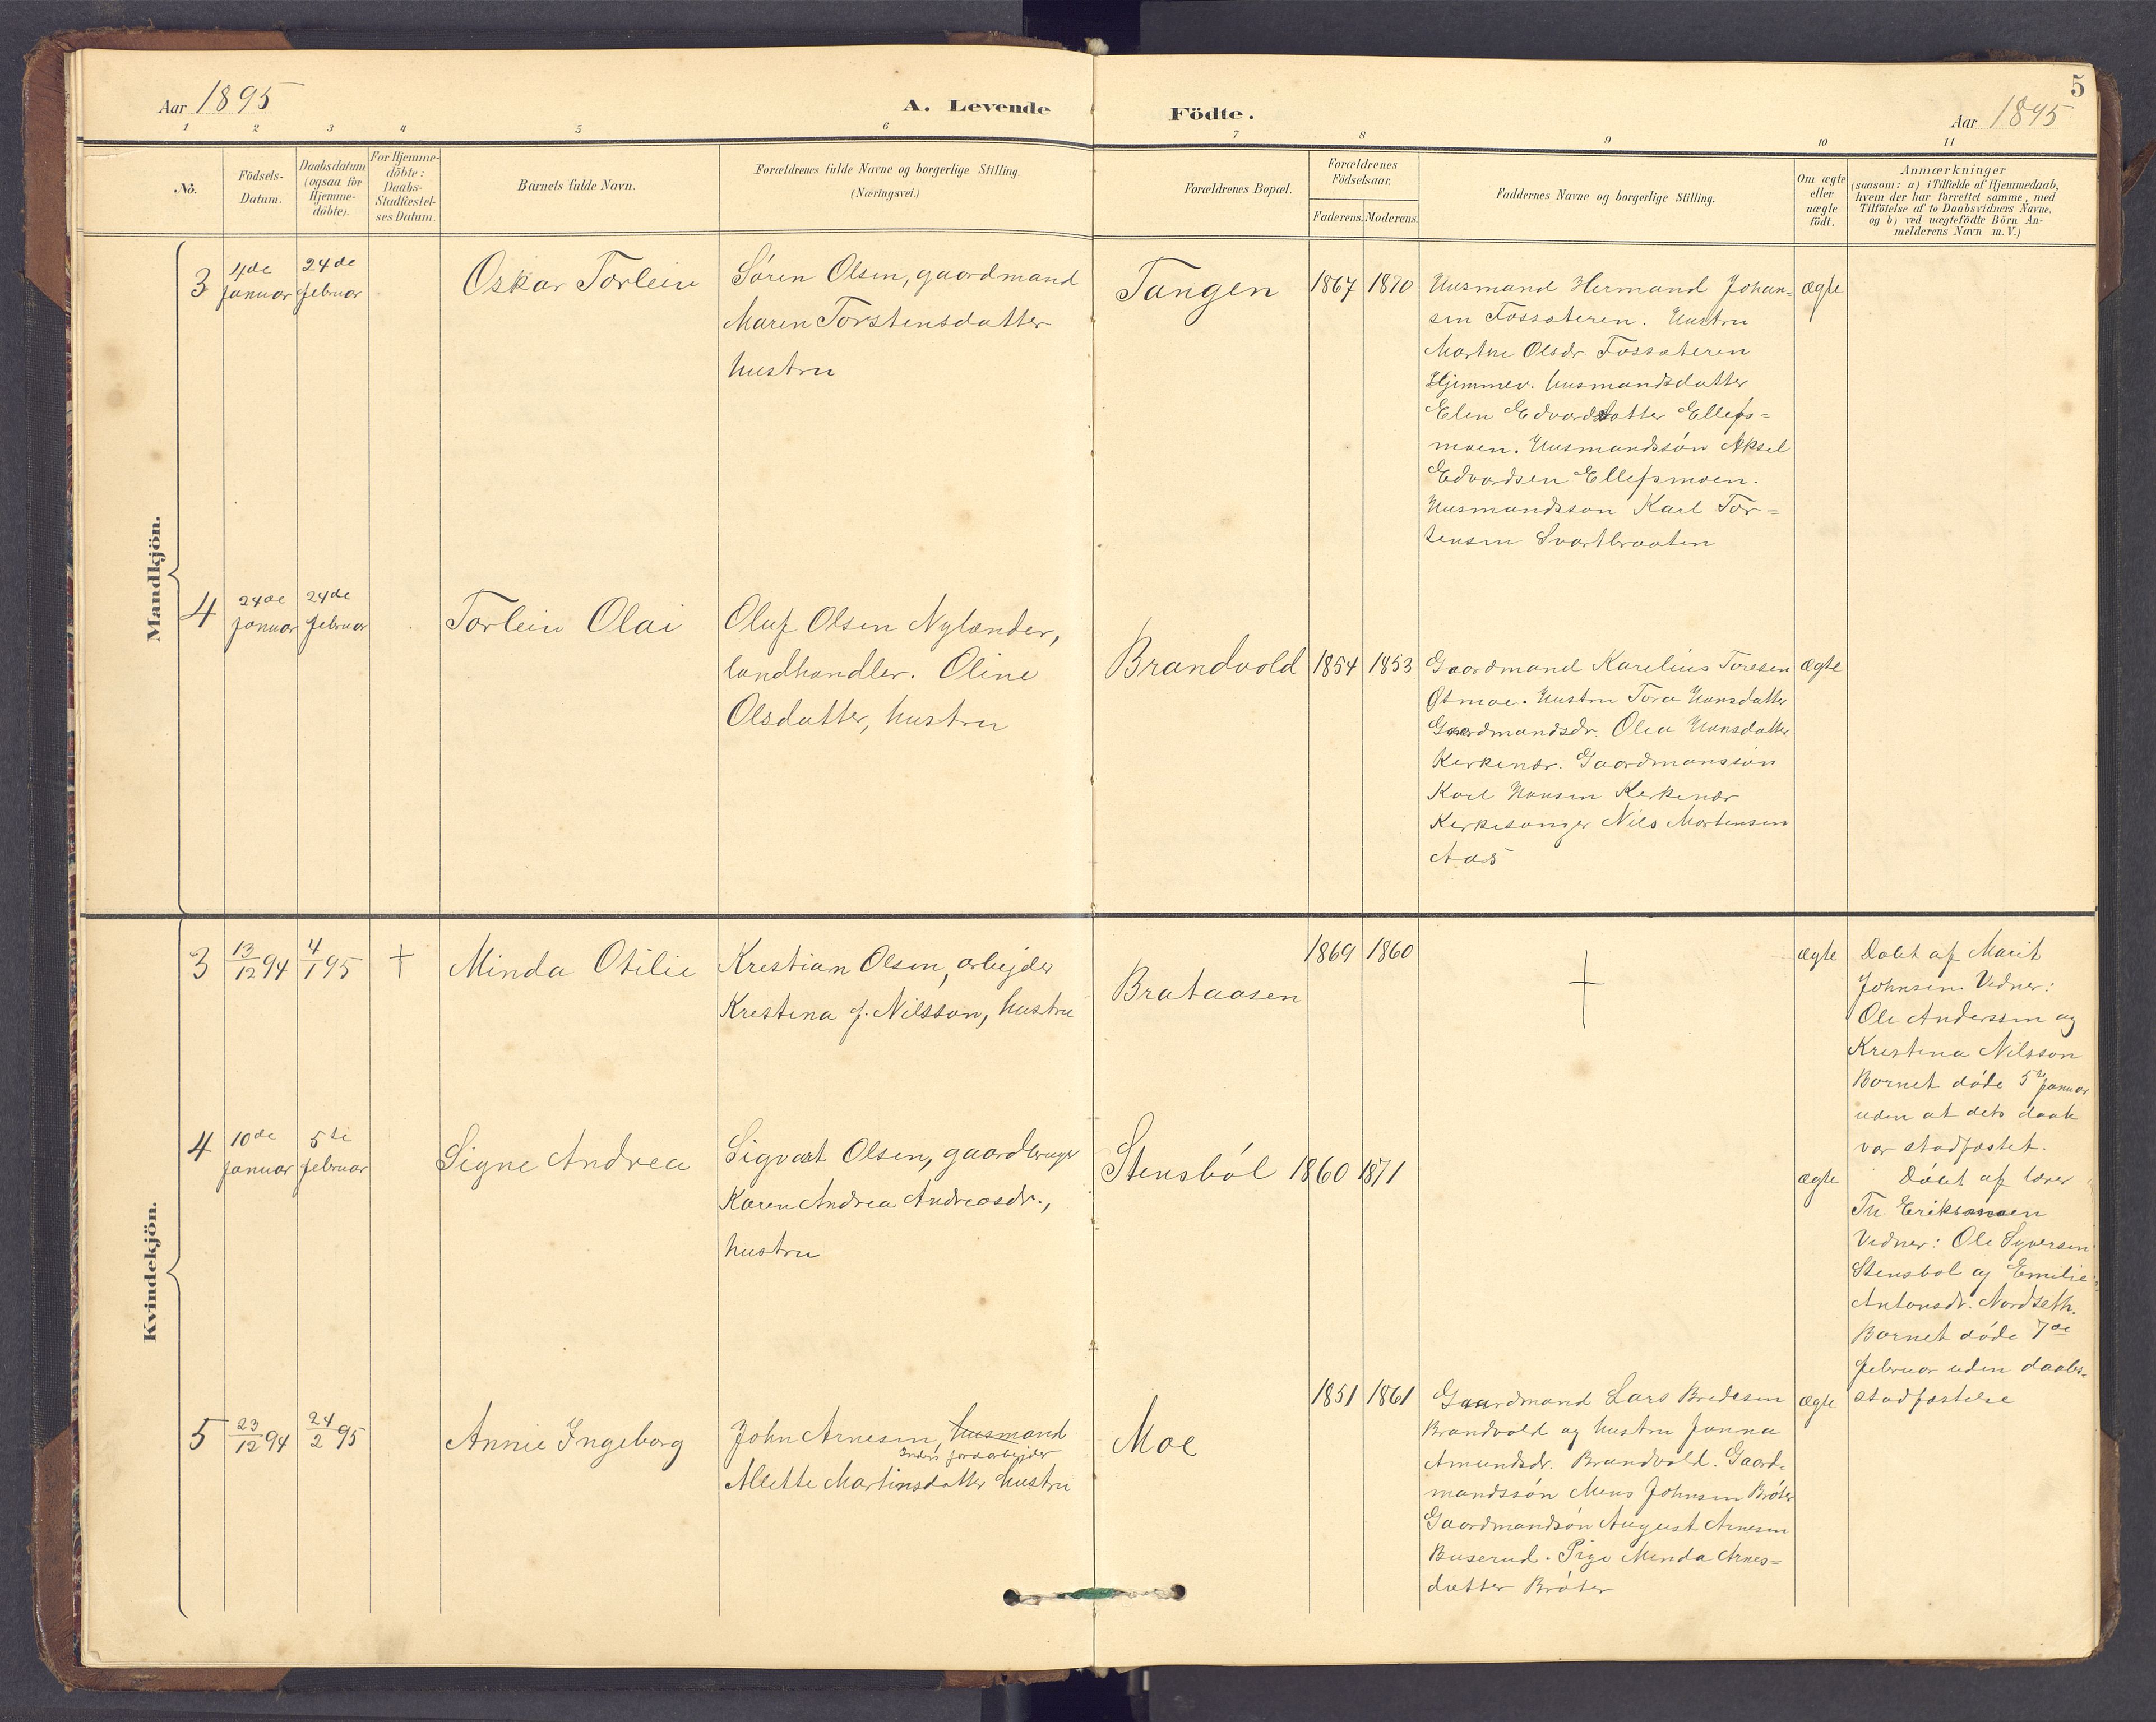 5
Aar 1895
A. Levende Födte.
Aar 1895
1 2 3 4 5 6 7 8 9 10 11
No.
Födsels-
Datum.
Daabsdatum
(ogsaa for
Hjemme-
döbte).
For Hjemme-
döbte:
Daabs-
Stadfæstel-
ses Datum.
Barnets fulde Navn.
Forældrenes fulde Navne og borgerlige Stilling.
(Næringsvei.)
Forældrenes Bopæl.
Forældrenes
Födselsaar.
Faderens. Moderens.
Faddernes Navne og borgerlige Stilling.
Om ægte
eller
uægte
födt.
Anmærkninger
(saasom: a) i Tilfælde af Hjemmedaab,
hvem der har forrettet samme, med
Tilföielse af to Daabsvidners Navne,
og b) ved uægtefödte Börn An-
melderens Navn m. V.)
Mandkjön.
3
4de
januar
24de
februar
Oskar Torlein
Sören Olsen, gaardmand
Maren Torstensdatter
hustru
Tangen
1867 1870
Husmand Hermand Johan-
sen Fossateren. Hustru
Martne Olsdr. Fossateren
Hjemmev. husmandsdatter
Elen Edvardsdatter Ellefs-
moen. Husmandssön Aksel
Edvardsen Ellefsmoen.
Husmandsson Karl Tor-
stensen Svartbraaten
ægte
4
24de
januar
24de
februar
Torlein Olai
Oluf Olsen Nylænder,
landhandler. Oline
Olsdatter, hustru
Brandvold
1854 1853
Gaardmand Karelius Toresen
Østmoe. Hustru Tora Hansdatter
Gaardmandsdr. Olea Hansdatter
Kerkenær. Gaardmansson
Karl Hansen Kerkenær
Kerkesanger Nils Mortensen
Aas
ægte
Kvindekjön.
3
13/12 94
4/1 95
†
Minda Otilie
Krestian Olsen, arbejder
Krestina f. Nilsson, hustru
Brataasen
1869 1860
†
ægte
Døbt af Marit
Johnsen. Vidner:
Ole Anderssen og
Krestina Nilsson
Barnet døde 5te januar
uden at dets daab
var stadfæstet.
4
10de
januar
5te
februar
Signe Andrea
Sigvart Olsen, gaardbruger
Karen Andrea Andreasdr.,
hustru
Stensböl
1860 1871
ægte
Döbt af lærer
Th. Eriksmoen
Vidner: Ole Syversen
Stensbøl og Emilie
Antonsdr. Nordseth.
Barnet døde 7de
februar uden daabs-
stadfæstelse
5
23/12 94
24/2 95
Annie Ingeborg
John Arnesen, husmand
Inders. jordarbejder
Mlette Martinsdatter hustru
Moe
1851 1861
Gaardmand Lars Bredesen
Brandvold og hustru Janna
Amundsdr. Brandvold. Gaard-
mandssön Mens Johnsen Bröter
Gaardmandsön August Arnesen
Buserud. Pige Minda Arnes-
datter Bröter
ægte